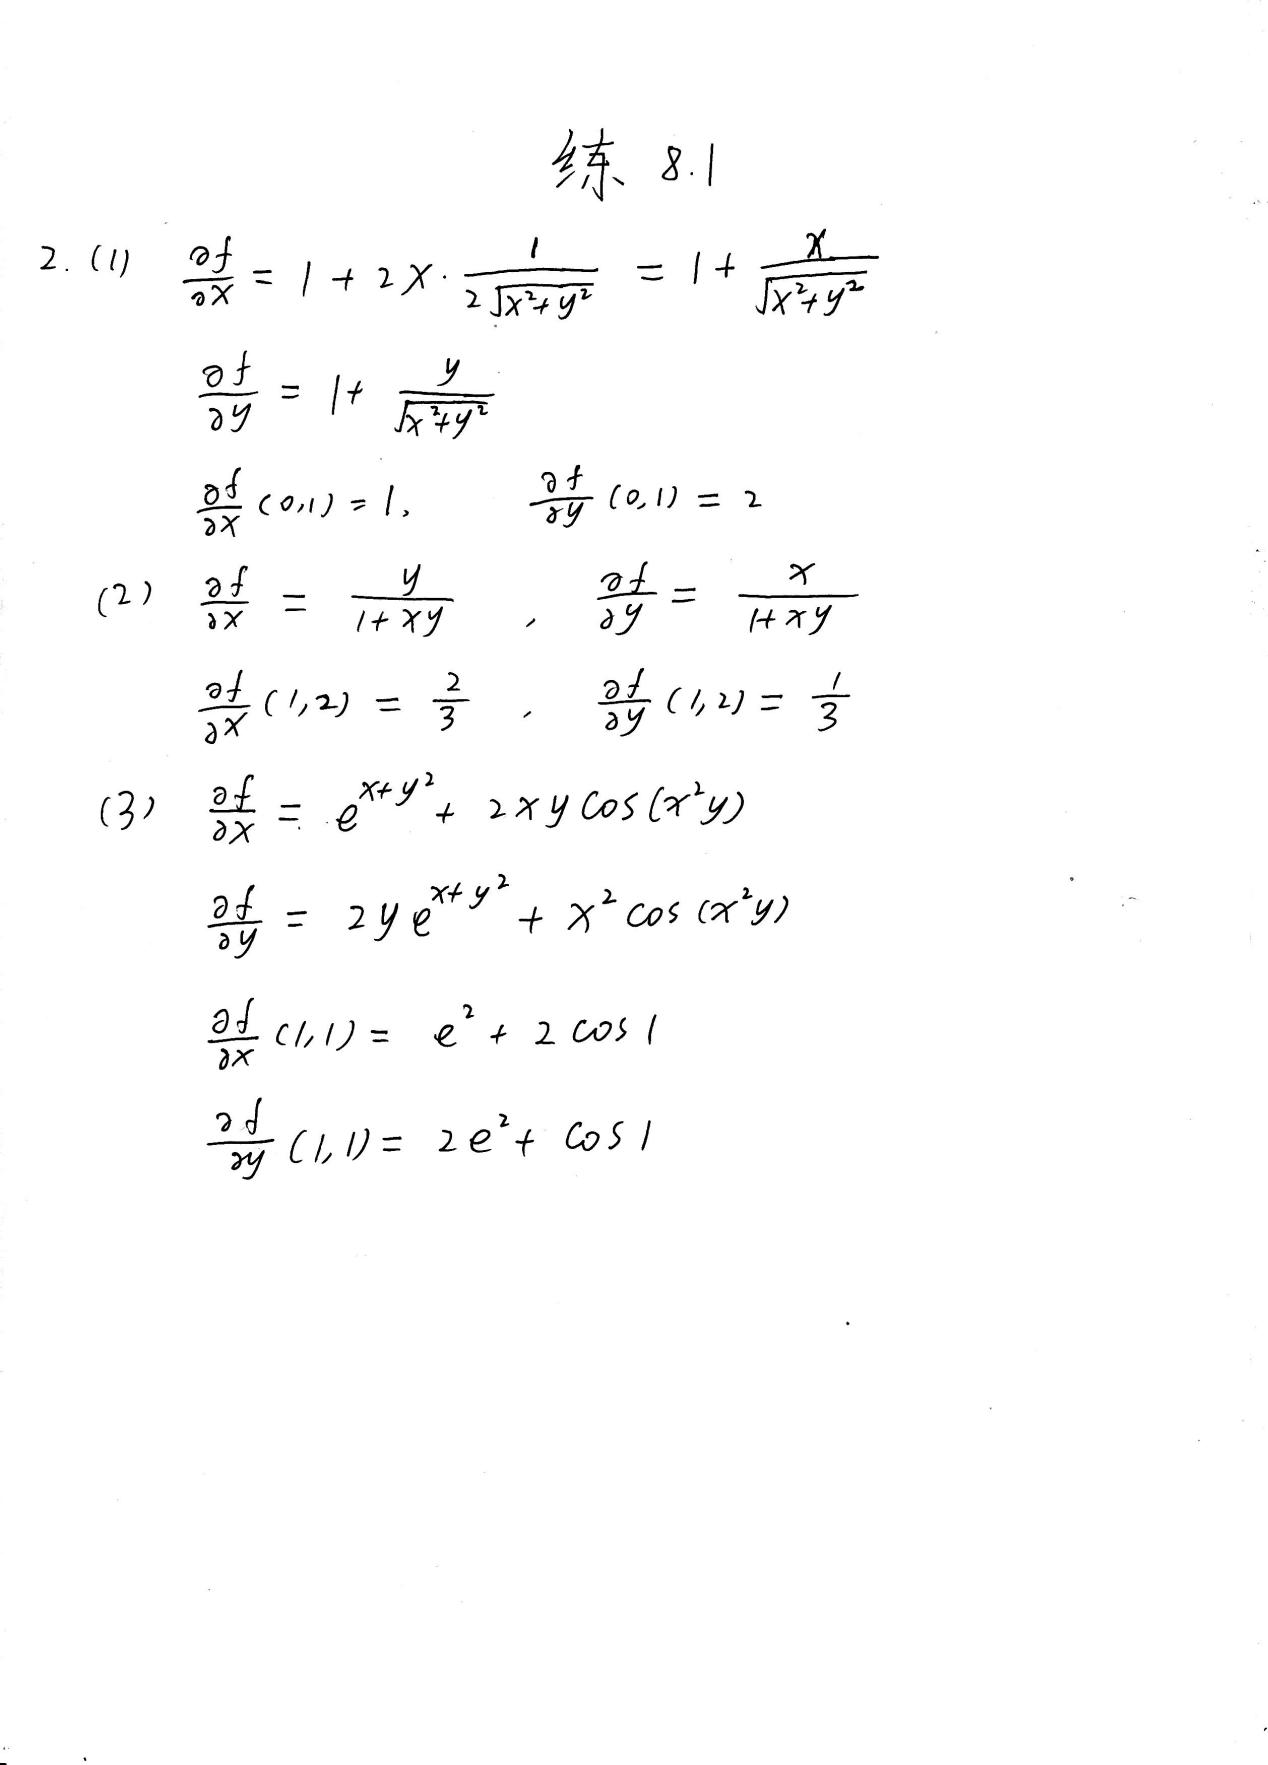 练 8.1
2. (1) ∂f/∂x = 1 + 2x · 1/(2√(x²+y²)) = 1 + x/√(x²+y²)
∂f/∂y = 1 + y/√(x²+y²)
∂f/∂x (0,1) = 1, ∂f/∂y (0,1) = 2
(2) ∂f/∂x = y/(1+xy) , ∂f/∂y = x/(1+xy)
∂f/∂x (1,2) = 2/3 , ∂f/∂y (1,2) = 1/3
(3) ∂f/∂x = e^(x+y²) + 2xy cos(x²y)
∂f/∂y = 2y e^(x+y²) + x² cos(x²y)
∂f/∂x (1,1) = e² + 2 cos 1
∂f/∂y (1,1) = 2e² + cos 1